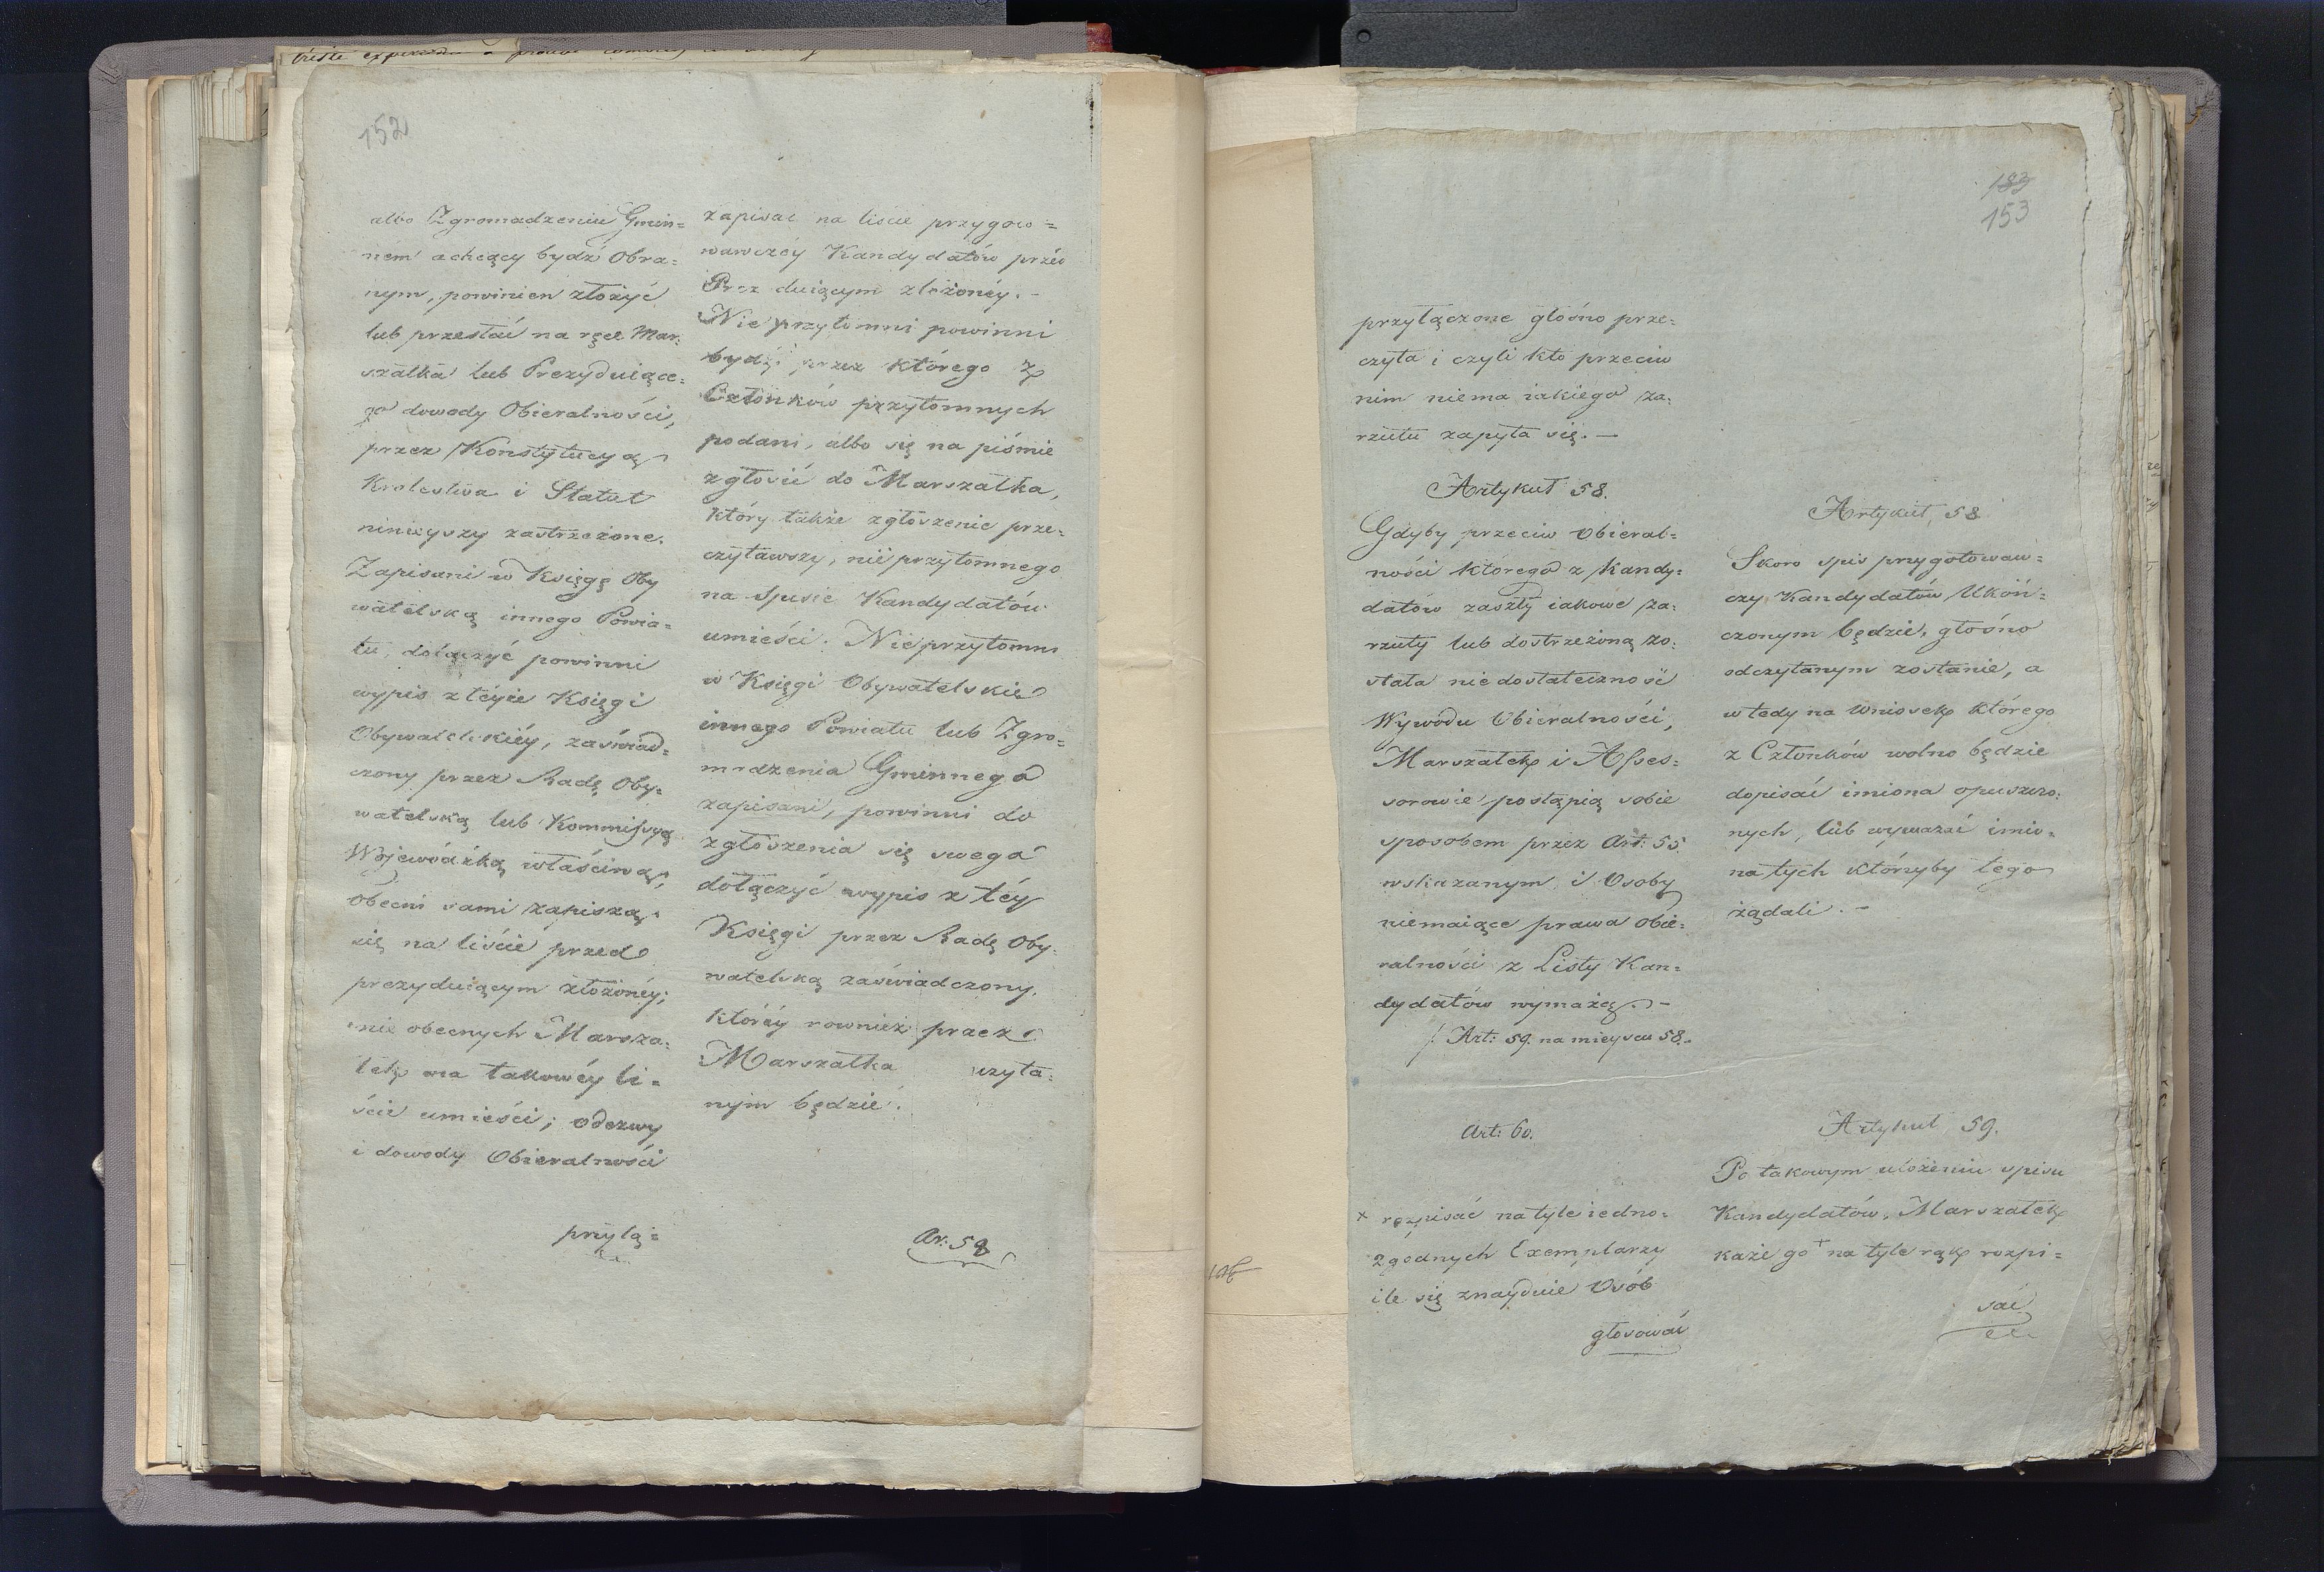 152
albo Zgromadzeniu Gmin=
ném a chcący bydź Obra=
nym, powinien złożyć
lub przesłać na ręce Mar:
szałka lub Prezyduiące:
go dowody Obieralności,
przez Konstytucyą
Krolestwa i Statut
ninieyszy zastrzeżone.
Zapisani w Księgę Oby
watelską innego Powia=
tu, dołączyć powinni
wypis z téyże Księgi
Obywatelskiéy, zaświad=
czony przez Radę Oby=
watelską lub Kommissyą
Wojewódzką właściwą,
obecni sami zapiszą
się na liście przed
prezyduiącym złożonéy;
nie obecnych Marsza=
łek na takowéy li=
ście umieści; odezwy
i dowody Obieralności
przyłą=
zapisać na liscie przygoto=
wawczéy Kandydatów przed
Prezyduiącym złożonéy. -
Nie przytomni powinni
bydź przez którego z
Członków przytomnych
podani, albo się na piśmie
zgłosić do Marszałka,
który także zgłoszenie prze=
czytawszy, nieprzytomnego
na spisie Kandydatów
umieści. Nieprzytomni
w Księgi Obywatelskie
innego Powiatu lub Zgro=
madzenia Gminnego
zapisani, powinni do
zgłoszenia się swego
dołączyć wypis z téy
Księgi przez Radę Oby=
watelską zaświadczony,
któréy rownież przez
Marszałka czyta=
nym będzie.
Ar: 58
183
153
przyłączone głośno prze=
czyta i czyli kto przeciw
nim niema iakiego za=
rzutu zapyta się. —
Artykuł 58.
Gdyby przeciw obieral=
ności którego z Kandy=
datów zaszły iakowe za=
rzuty lub dostrzeżoną zo=
stała niedostateczność
Wywodu Obieralności,
Marszałek i Asses=
sorowie postąpią sobie
sposobem przez Art: 55.
wskazanym i Osoby
niemaiące prawa Obie=
ralności z Listy Kan=
dydatów wymażą. -
/: Art: 59. na mieyscu 58.
Art: 60.
× rozpisać na tyle iedno=
zgodnych Exemplarzy
ile się znayduie Osób
głosować
Artykuł 58
Skoro spis przygotowaw=
czy Kandydatów Ukoń=
czonym będzie, głośno
odczytanym zostanie, a
wtedy na Wniosek którego
z Członków wolno będzie
dopisać imiona opuszczo=
nych, lub wymazać imio=
na tych którzyby tego
żądali. -
Artykuł 59.
Po takowym ułożeniu spisu
Kandydatów, Marszałek
każe go × na tyle rąk rozpi=
sać